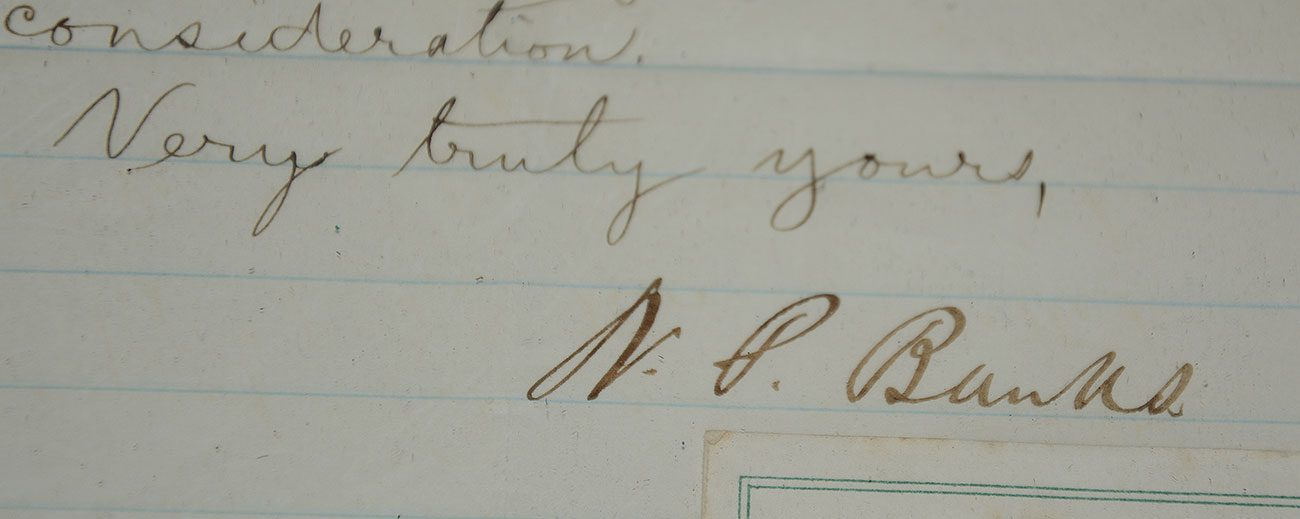 consideration.
Very truly yours,
N. P. Banks